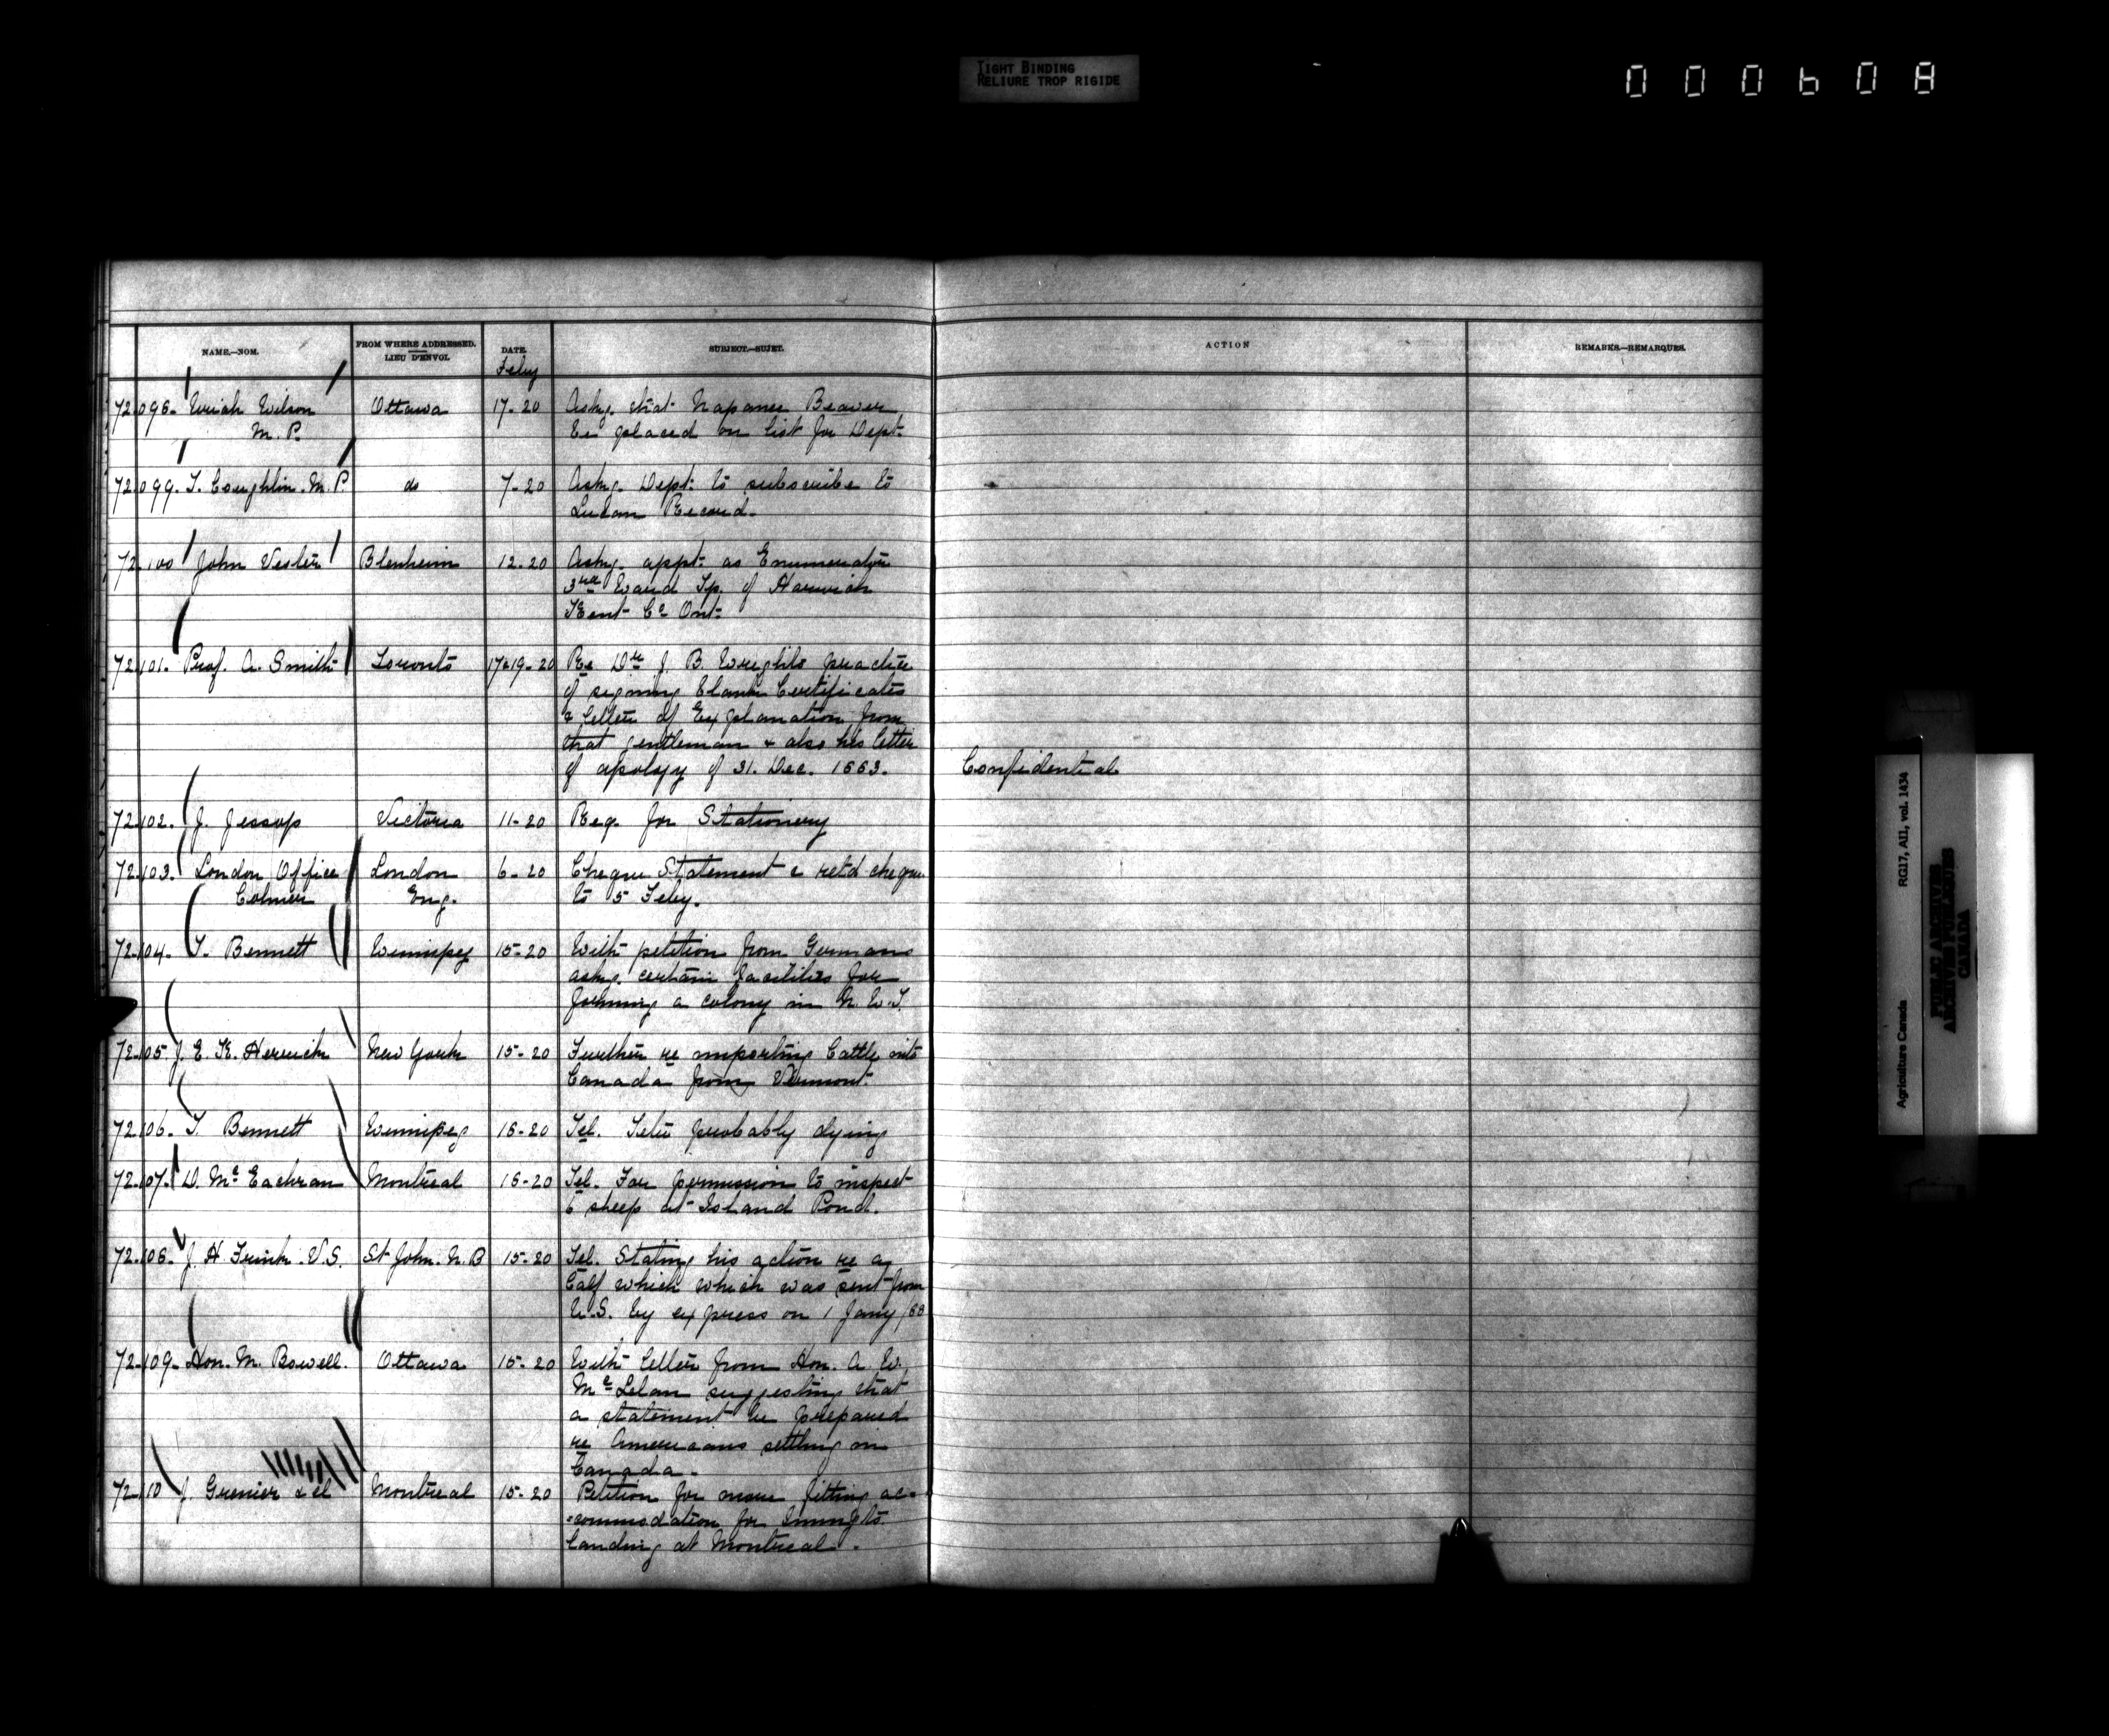 TIGHT BINDING
RELIURE TROP RIGIDE
000608
NAME.—NOM.
FROM WHERE ADDRESSED.
LIEU D'ENVOI.
DATE.
SUBJECT.—SUJET.
ACTION
REMARKS.—REMARQUES.
Feby
72.098. Uriah Wilson Ottawa 17-20 Askg. that Napanee Beaver
M.P. be placed on list for Dept.
72.099. T. Coughlin. M.P. do 7-20 Askg. Dept: to subscribe to
Lucan Record.
72.100 John Vester Blenheim 12.20 Askg. appt: as Enumerator
3rd Ward Tp. of Harwich
Kent Co Ont.
72.101. Prof. A. Smith Toronto 17&19-20 Re Dr J. B. Wrights practice
of signing blank Certificates
& letter of Explanation from
that gentleman & also his letter
of apology of 31. Dec. 1883. Confidential
72.102. J. Jessop Victoria 11-20 Req. for Stationery
72.103. London Office London 6-20 Cheque Statement & retd cheques
Colmer Eng. to 5 Feby.
72.104. T. Bennett Winnipeg 15-20 With petition from Germans
askg. certain facilities for
forming a colony in N.W.T.
72.105. J. E. K. Herrick New York 15-20 Further re importing Cattle into
Canada from Vermont.
72.106. T. Bennett Winnipeg 18-20 Tel. probably dying
72.107. D. McEachran Montreal 18-20 Tel. For permission to inspect
6 sheep at Island Pond.
72.108. J. H. Frink. V.S. St John. N.B 15-20 Tel. Stating his action re a
Calf which which was sent from
U.S. by express on 1 Jany /88
72.109. Hon. M. Bowell. Ottawa 15-20 With letter from Hon. A. W.
McLelan suggesting that
a statement be prepared
re Americans settling in
Canada.
72.110 J. Grenier & el Montreal 15-20 Petition for more fitting ac-
-commodation for Immgts.
landing at Montreal.
Agriculture Canada RG17, AII, vol. 1434
PUBLIC ARCHIVES
ARCHIVES PUBLIQUES
CANADA